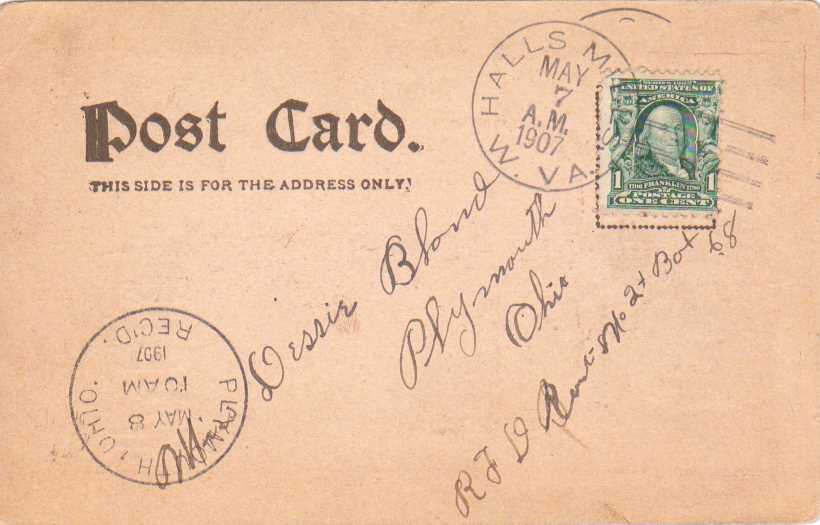 Post Card.
THIS SIDE IS FOR THE ADDRESS ONLY.
HALLS MILLS
MAY
7
A.M.
1907
W. VA.
SERIES 1902
UNITED STATES OF
AMERICA
1706 FRANKLIN 1790
1 1
POSTAGE
ONE CENT
Miss Dessie Blond
Plymouth
Ohio
R F D No 2 Box 68
PLYMOUTH, OHIO.
MAY 8
10 AM
1907
REC'D.